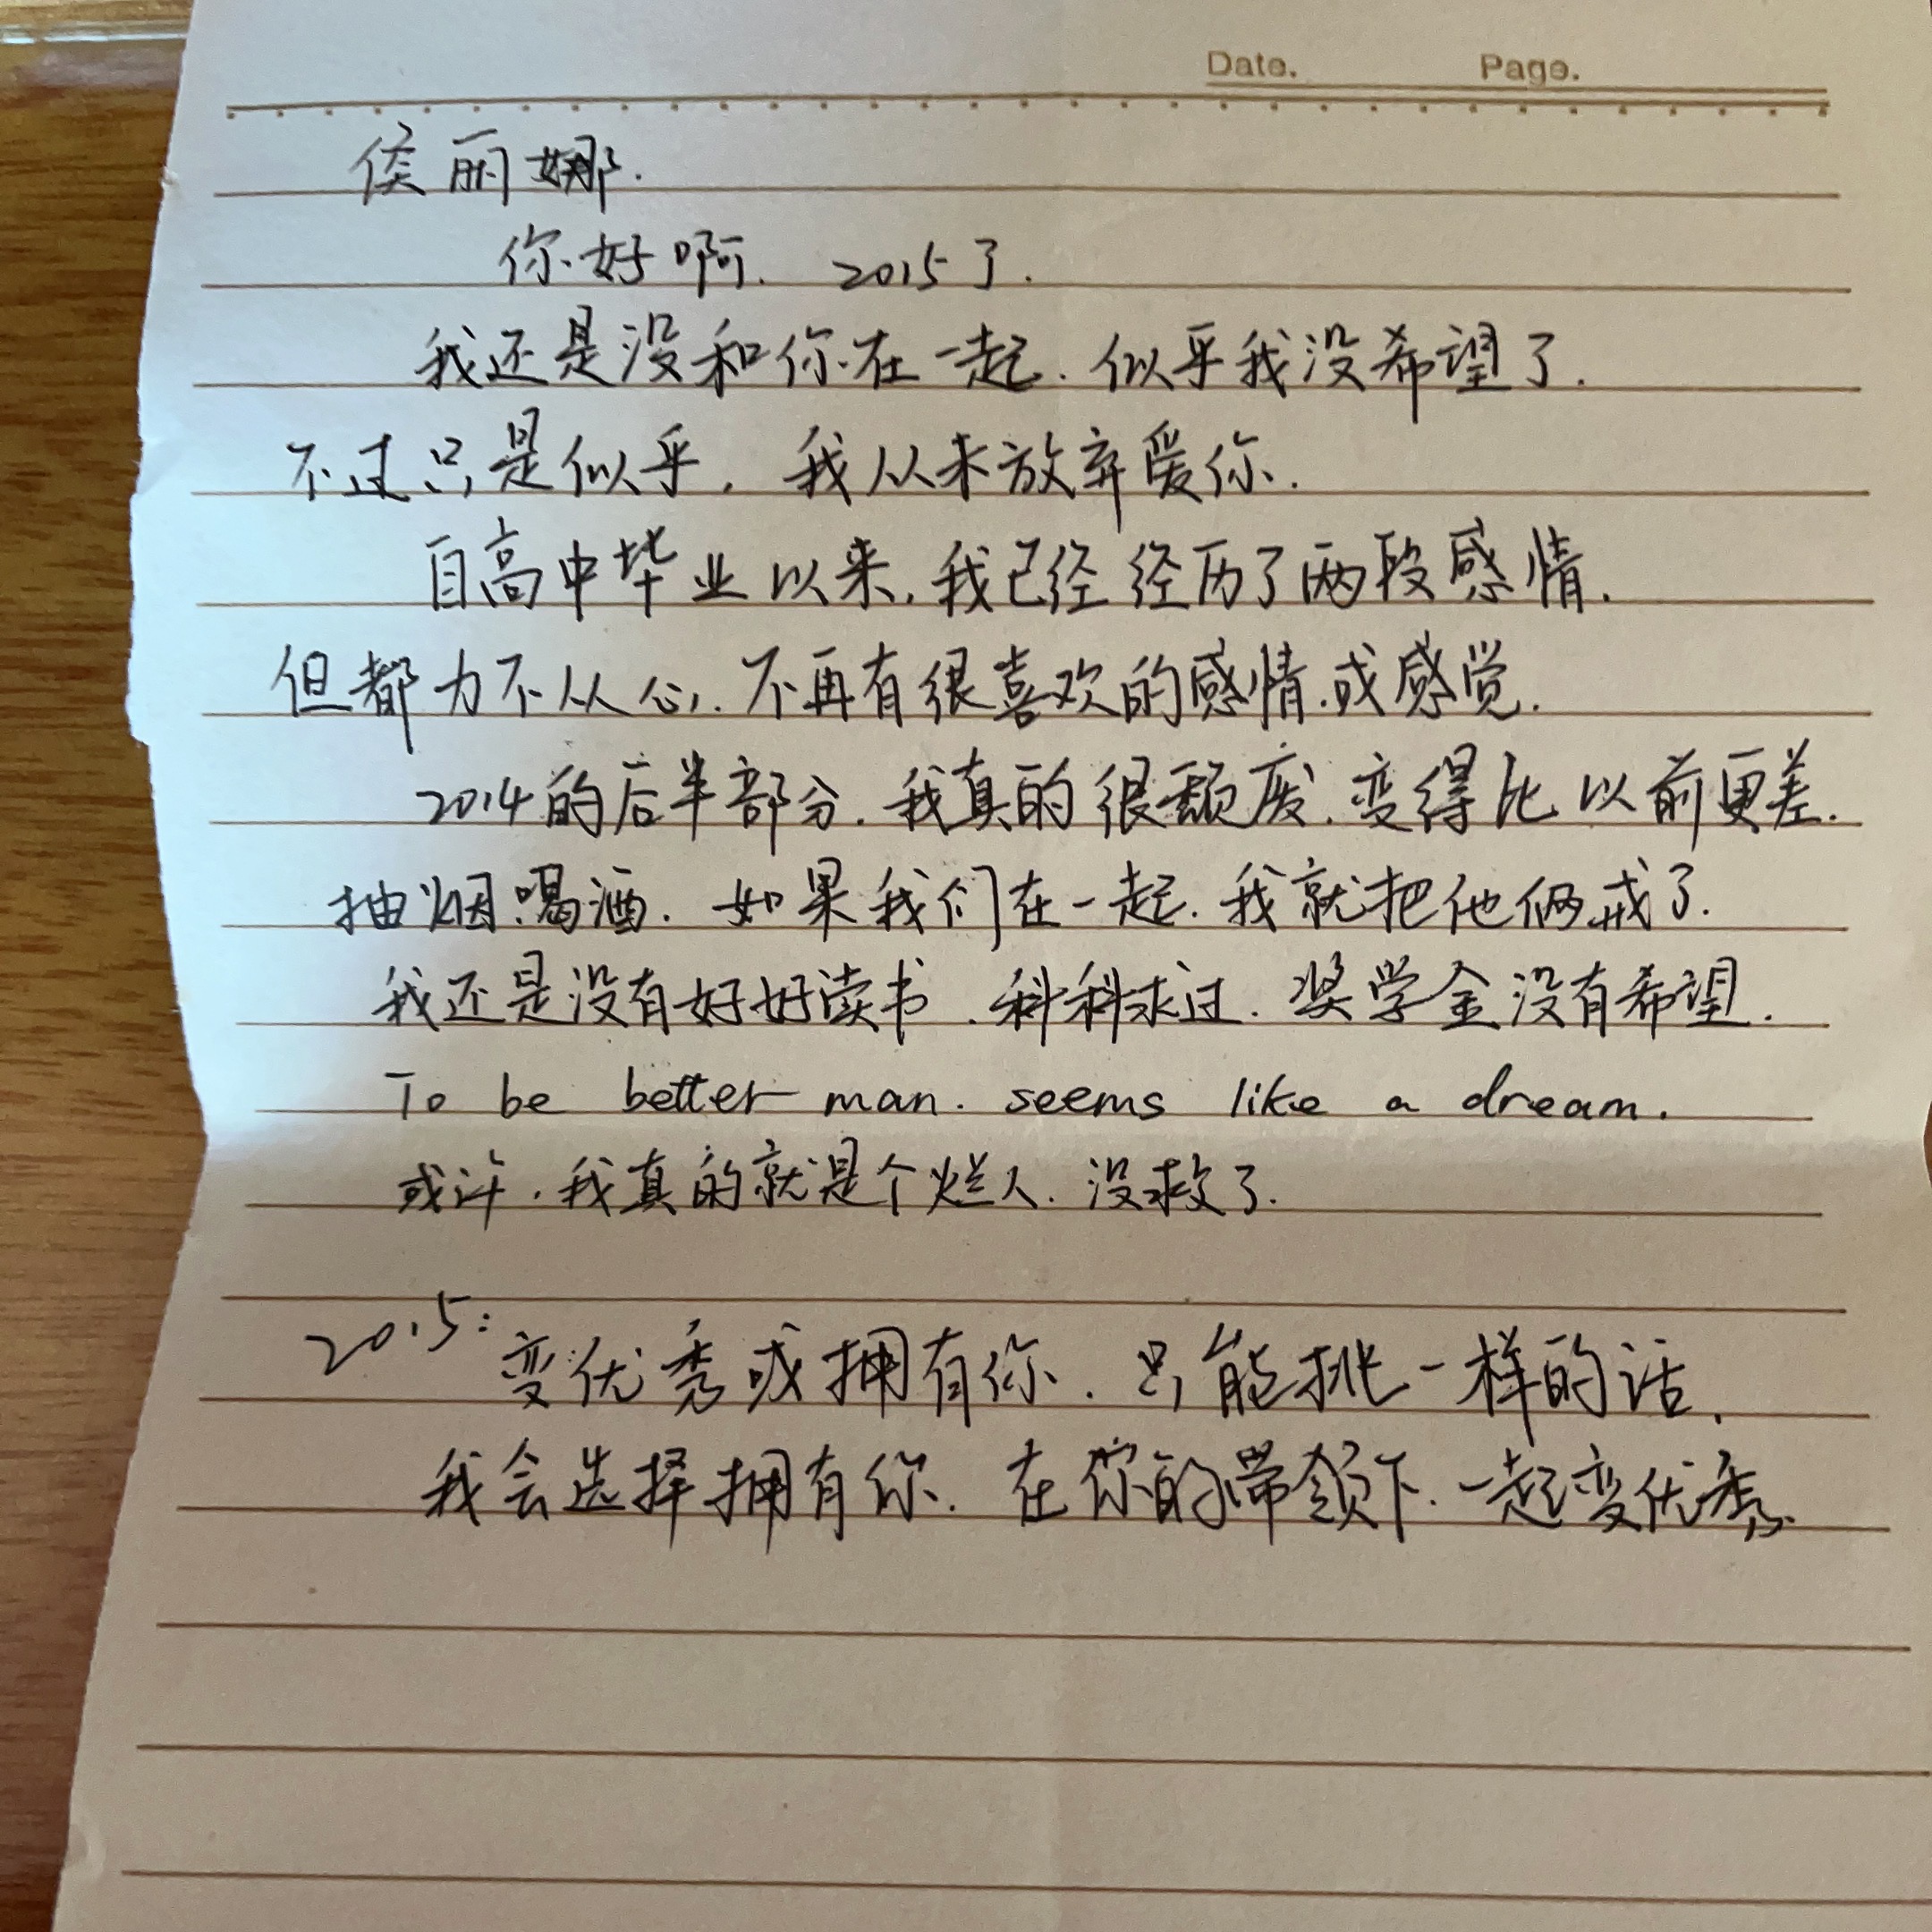 Date. Page.
侯丽娜.
你好啊. 2015了.
我还是没和你在一起. 似乎我没希望了.
不过只是似乎, 我从未放弃爱你.
自高中毕业以来, 我已经经历了两段感情.
但都力不从心, 不再有很喜欢的感情.或感觉.
2014的后半部分. 我真的很颓废. 变得比以前更差.
抽烟.喝酒. 如果我们在一起. 我就把他俩戒了.
我还是没有好好读书. 科科求过. 奖学金没有希望.
To be better man. seems like a dream.
或许. 我真的就是个烂人. 没救了.
2015: 变优秀或拥有你. 只能挑一样的话,
我会选择拥有你. 在你的带领下. 一起变优秀.